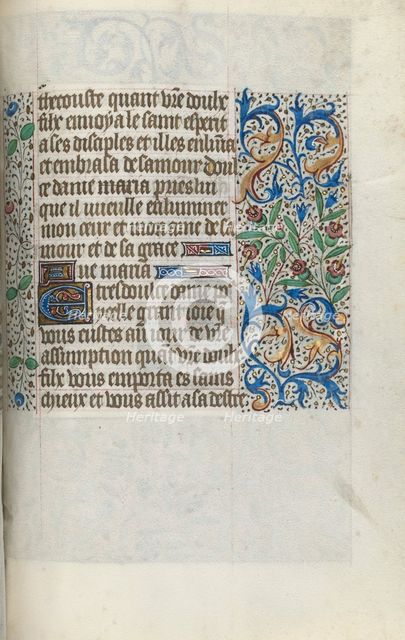 thecouste quant vr̄e doulx
filx envoya le saint esperit
a ses disciples et illes enlūīa
et embrasa de samour doul
ce dame maria pries luy
que il vueille enlummer
mon cœur et mon ame de sa
mour et de sa grace
Aue maria
tresdoulce dame po
celle grant ioie q̄
vous eustes au iour de vr̄e
assumption quāt vr̄e doulx
filx vous emporta es sains
chieux et vous assit a sa destre
Heritage Heritage Heritage